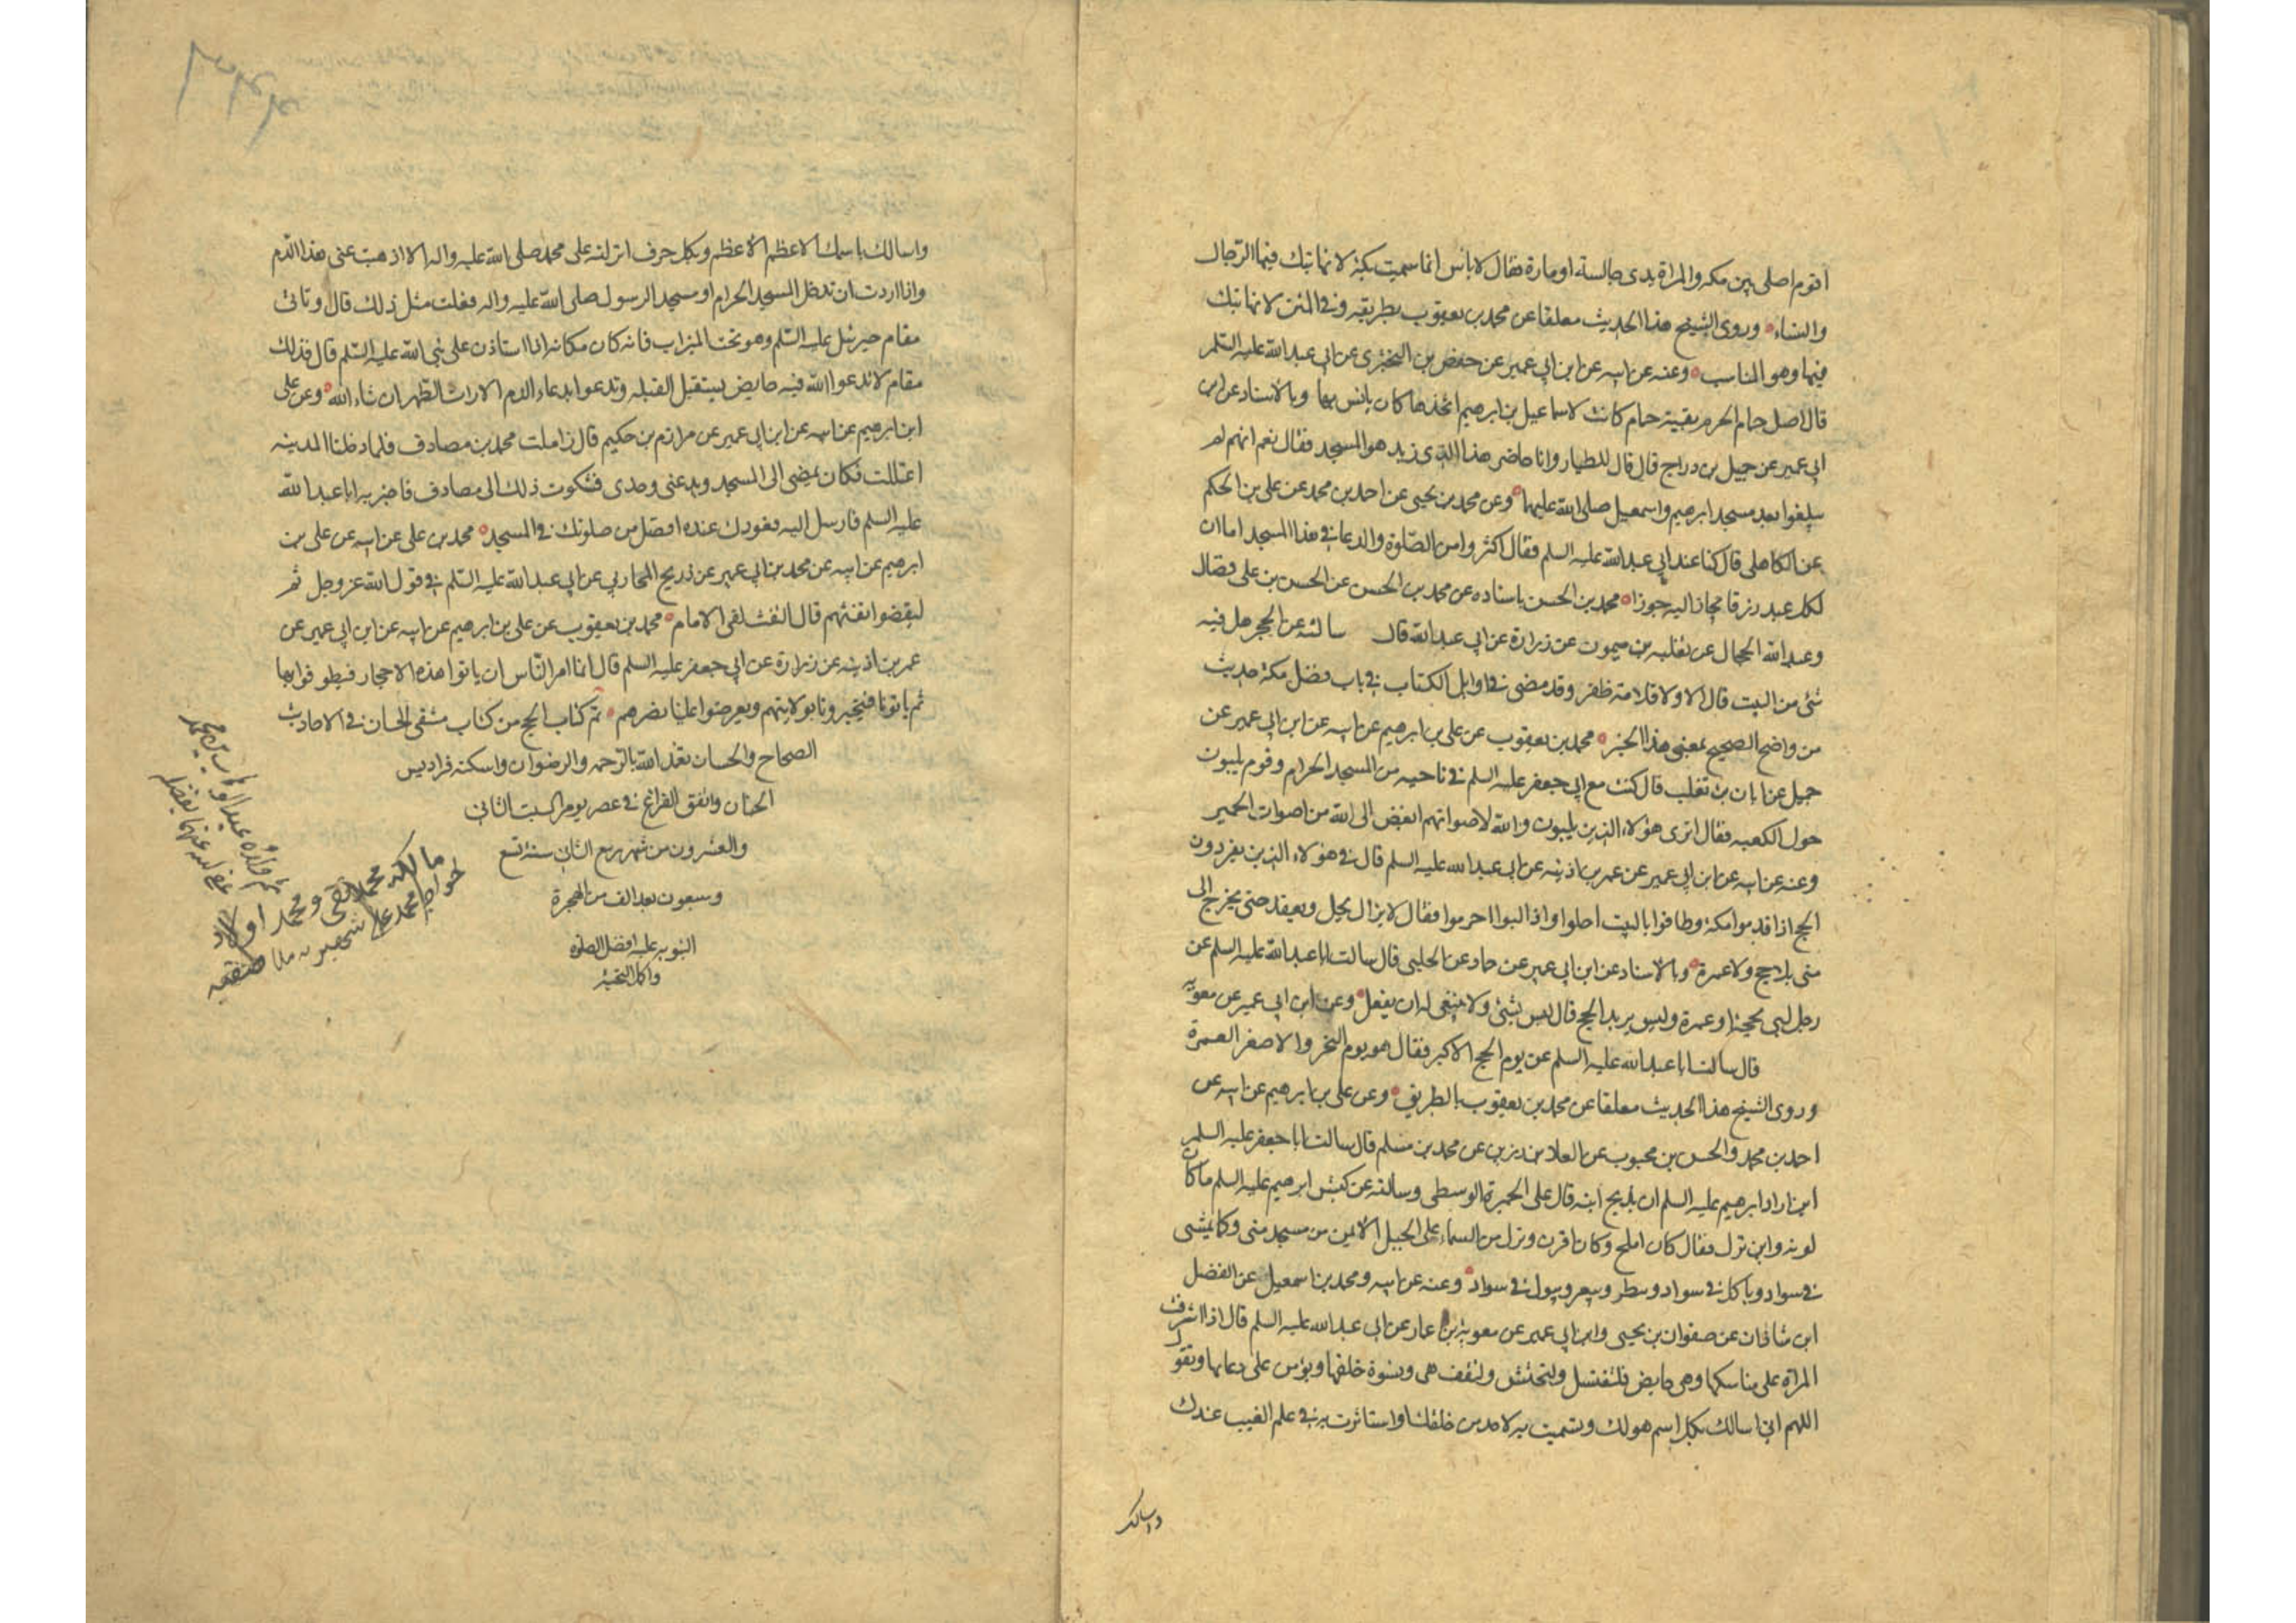 اقوم اصلي بمكه والمراة بين يدي جالسة او مارة فقال لا باس انما سميت بكة لانها تبك فيها الرجال
والنساء وروى الشيخ هذا الحديث معلقا عن محمد بن يعقوب بطريقه وفي المتن لانها تبك
فيها وهو المناسب وعنه عن ابيه عن ابن ابي عمير عن حفص بن البختري عن ابي عبد الله عليه السلم
قال اصل حمام الحرم بقية حمام كانت لاسماعيل بن ابرهيم اتخذها كان يانس بها وبالاسناد عن ابن
ابي عمير عن جميل بن دراج قال قال له الطيار وانا حاضر هذا الذي زيد هو المسجد فقال نعم انهم لم
يبلغوا بعد مسجد ابرهيم واسمعيل صلى الله عليهما وعن محمد بن يحيى عن احمد بن محمد عن علي بن الحكم
عن الكاهلي قال كنا عند ابي عبد الله عليه السلم فقال اكثروا من الصلوة والدعا في هذا المسجد اما ان
لكل عبد رزقا يجاز اليه جوزا محمد بن الحسن باسناده عن محمد بن الحسن عن الحسن بن علي فضال
وعبد الله الحجال عن ثعلبه بن ميمون عن زرارة عن ابي عبد الله قال سالته عن الحجر هل فيه
شئ من البيت قال لا ولا قلامة ظفر وقد مضى في اوايل الكتاب في باب فضل مكة حديث
من واضح الصحيح بمعنى هذا الخبر محمد بن يعقوب عن علي بن ابرهيم عن ابيه عن ابن ابي عمير عن
جميل عن ابان بن تغلب قال كنت مع ابي جعفر عليه السلم في ناحيه من المسجد الحرام وقوم يلبون
حول الكعبه فقال اترى هؤلاء الذين يلبون والله لاصواتهم ابغض الى الله من اصوات الحمير
وعنه عن ابيه عن ابن ابي عمير عن عمر بن اذينه عن ابي عبد الله عليه السلم قال في هؤلاء الذين يفردون
الحج اذا قدموا مكة وطافوا بالبيت احلوا واذا لبوا احرموا فقال لا يزال يحل ويعقد حتى يخرج الى
منى بلا حج ولا عمرة وبالاسناد عن ابن ابي عمير عن حماد عن الحلبي قال سالت ابا عبد الله عليه السلم عن
رجل لبى بحجة او عمرة وليس يريد الحج قال ليس بشئ ولا ينبغي له ان يفعل وعن ابن ابي عمير عن معويه
قال سالت ابا عبد الله عليه السلم عن يوم الحج الاكبر فقال هو يوم النحر والاصغر العمرة
وروى الشيخ هذا الحديث معلقا عن محمد بن يعقوب بالطريق وعن علي بن ابرهيم عن ابيه عن
احمد بن محمد والحسن بن محبوب عن العلا بن رزين عن محمد بن مسلم قال سالت ابا جعفر عليه السلم
اين اراد ابرهيم عليه السلم ان يذبح ابنه قال على الجمرة الوسطى وسالته عن كبش ابرهيم عليه السلم ما كان
لونه واين نزل فقال كان املح وكان اقرن ونزل من السماء على الجبل الايمن من مسجد منى وكان يمشي
في سواد وياكل في سواد وينظر ويبعر ويبول في سواد وعنه عن ابيه ومحمد بن اسمعيل عن الفضل
ابن شاذان عن صفوان بن يحيى وابن ابي عمير عن معوية بن عمار عن ابي عبد الله عليه السلم قال اذا اشرفت
المراة على مناسكها وهي حايض فلتغتسل ولتحتش ولتقف هي ونسوة خلفها ويؤمن على دعايها وتقول
اللهم اني اسالك بكل اسم هو لك وتسميت به لاحد من خلقك او استاثرت به في علم الغيب عندك
واسالك
واسالك باسمك الاعظم الاعظم وبكل حرف انزلته على محمد صلى الله عليه واله الا اذهبت عني هذا الدم
واذا اردت ان تدخل المسجد الحرام او مسجد الرسول صلى الله عليه واله فعلت مثل ذلك قال وتاتي
مقام جبرئيل عليه السلم وهو تحت الميزاب فانه كان مكانه اذا استاذن على نبي الله عليه السلم قال فذلك
مقام لا تدعوا الله فيه حايض تستقبل القبله وتدعوا بدعاء الدم الا رات الطهر ان شاء الله وعن علي
ابن ابرهيم عن ابيه عن ابن ابي عمير عن مرازم بن حكيم قال زاملت محمد بن مصادف فلما دخلنا المدينه
اعتللت فكان يمضي الى المسجد ويدعني وحدى فشكوت ذلك الى مصادف فاخبر به ابا عبد الله
عليه السلم فارسل اليه قعودك عنده افضل من صلوتك في المسجد محمد بن علي عن ابيه عن علي بن
ابرهيم عن ابيه عن محمد بن ابي عمير عن ذريح المحاربي عن ابي عبد الله عليه السلم في قول الله عز وجل ثم
ليقضوا تفثهم قال التفث لقى الامام محمد بن يعقوب عن علي بن ابرهيم عن ابيه عن ابن ابي عمير عن
عمر بن اذينه عن زرارة عن ابي جعفر عليه السلم قال انما امر الناس ان ياتوا هذه الاحجار فيطوفوا بها
ثم ياتونا فيخبرونا بولايتهم ويعرضوا علينا نصرهم تم كتاب الحج من كتاب منتقى الجمان في الاحاديث
الصحاح والحسان تغمد الله بالرحمه والرضوان واسكنه فراديس
الجنان واتفق الفراغ في عصر يوم السبت الثاني
والعشرون من شهر ربيع الثاني سنة تسع
وسبعون بعد الف من الهجرة
النبويه عليه افضل الصلوه
واكمل التحية
مالكه محمد تقي ومحمد اولاد